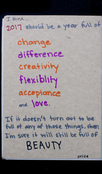 I think
2017 should be a year full of
change
difference
creativity
flexiblity
acceptance
and love.
If it doesn't turn out to be
full of any of those things, then
I'm sure it will still be full of
BEAUTY